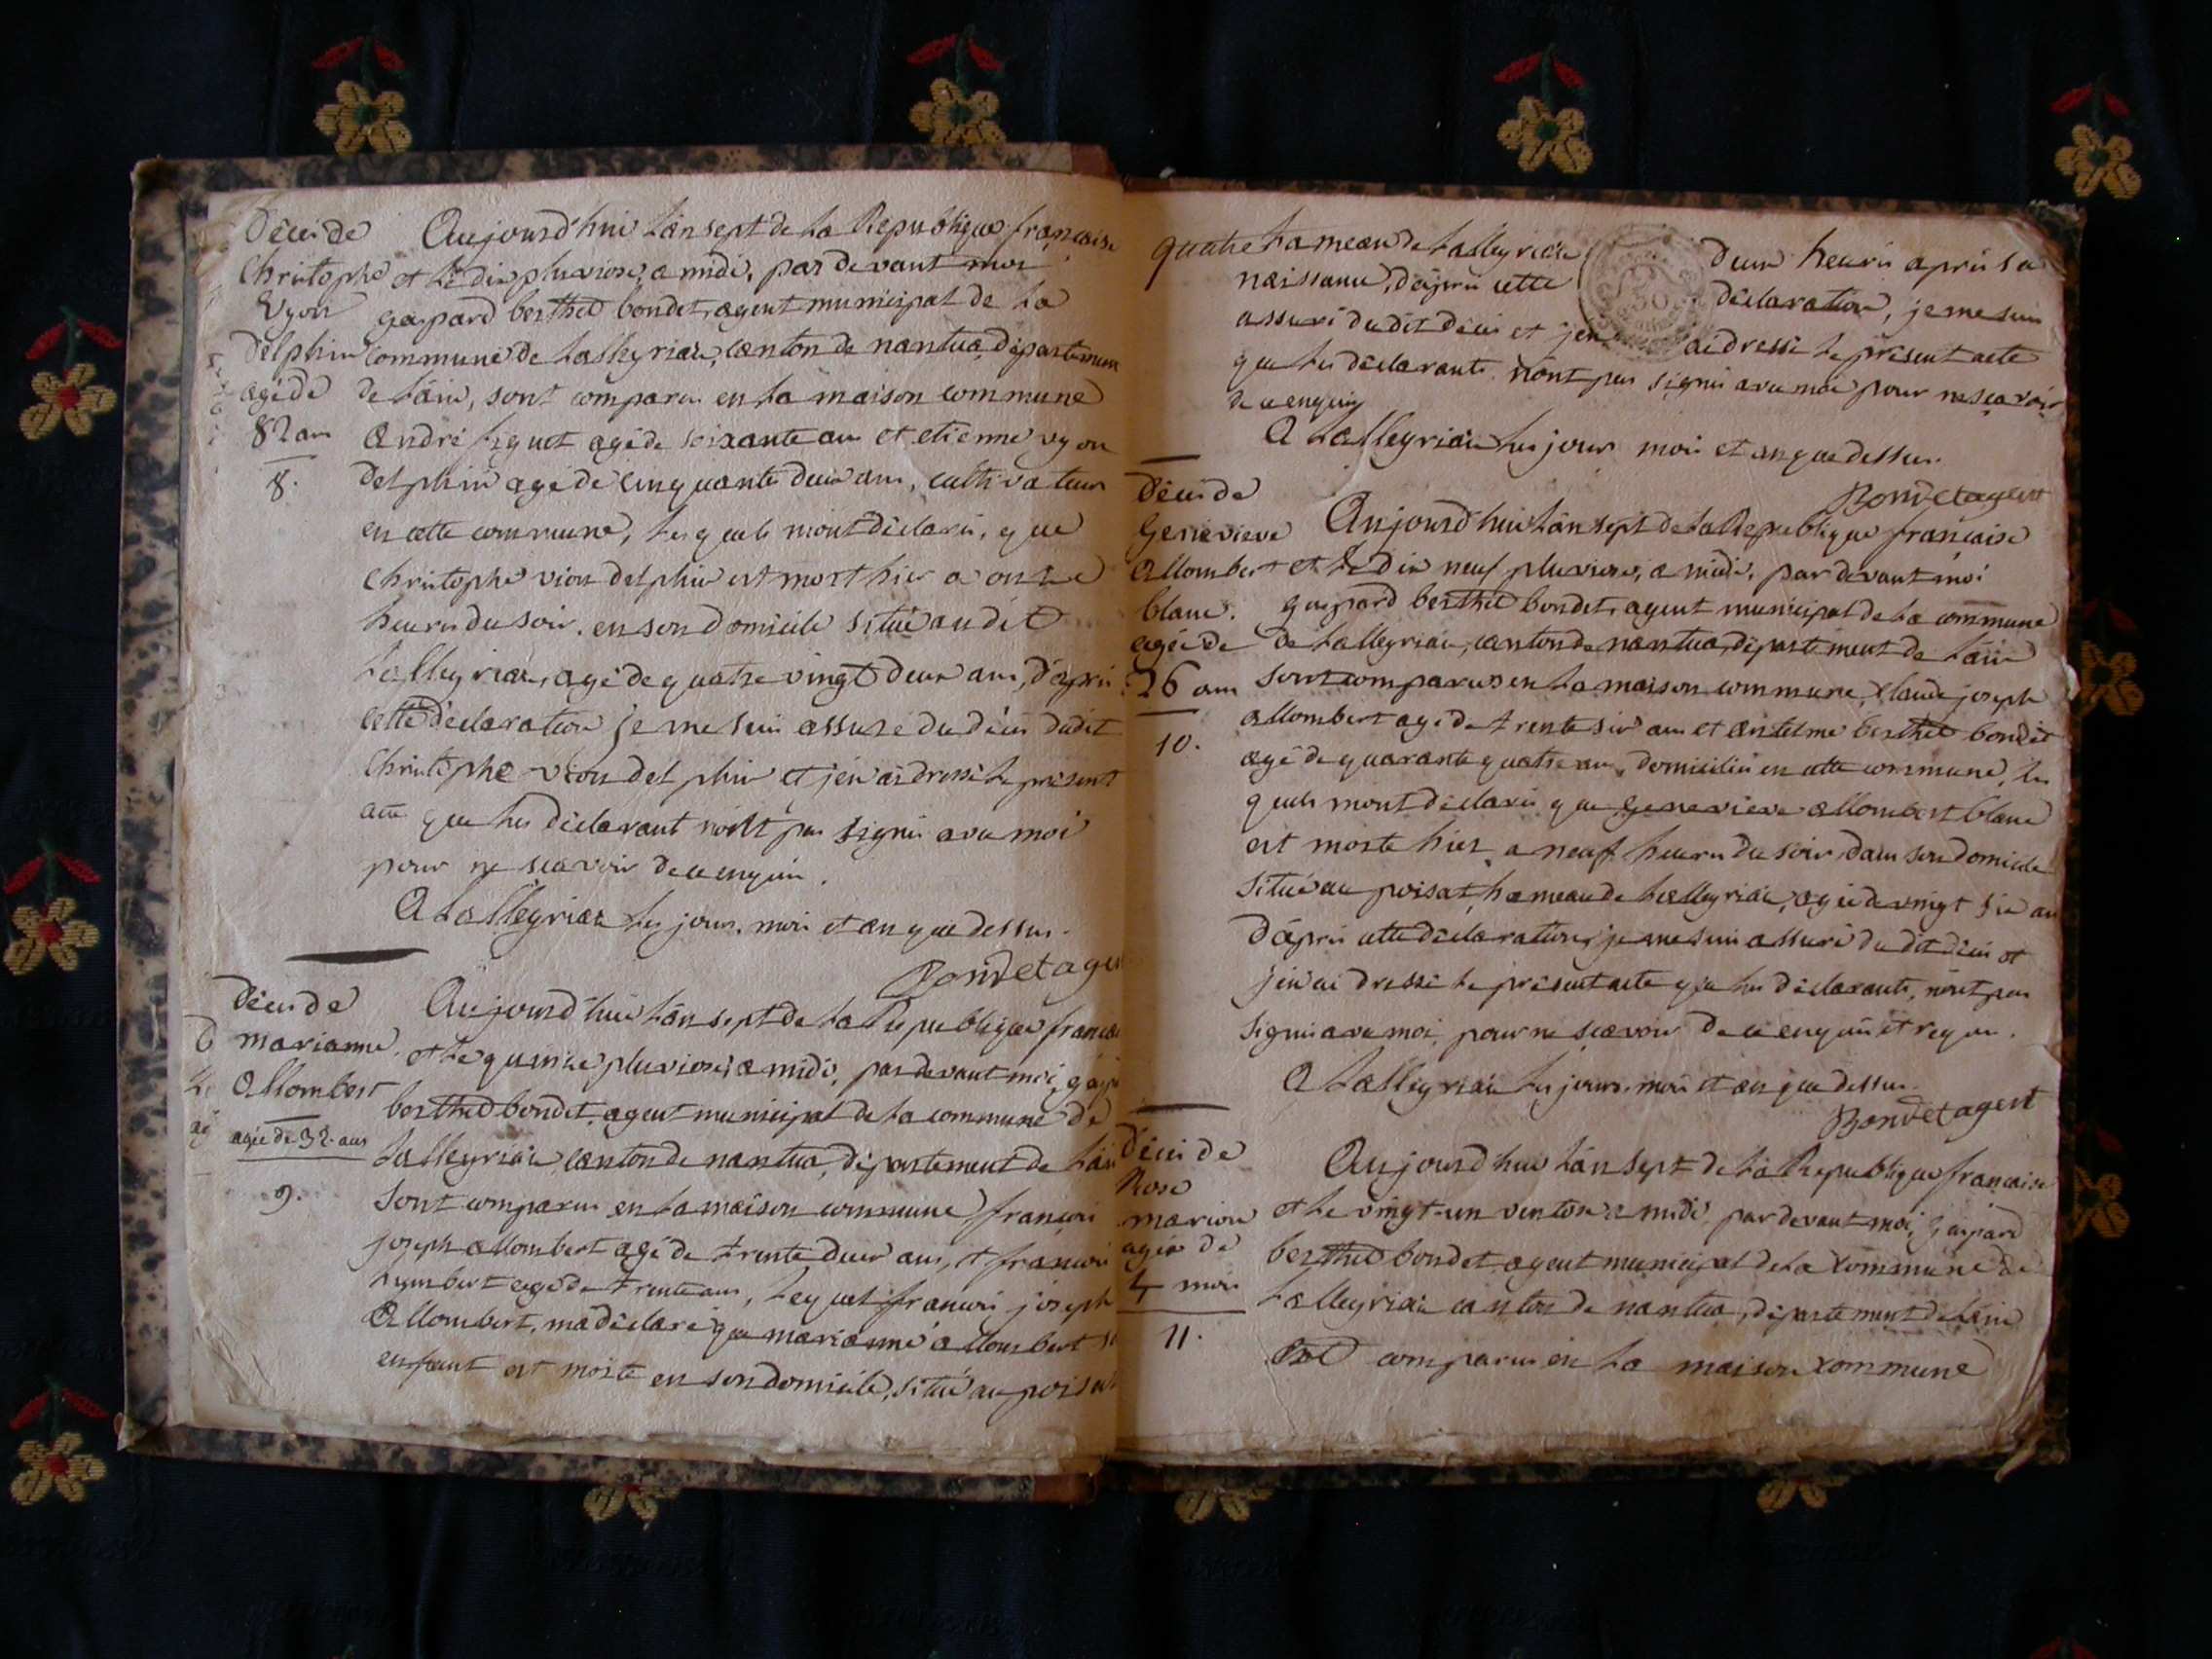 Décès de
Christophe
Vyon
delphin
agé de
82 ans
8.
Aujourd'hui l'an sept de la Republique française
et le dix pluviose a midi, par devant moi
gaspard berthet bondet, agent municipal de la
commune de Lalleyriat, canton de nantua, département
de l'ain, sont comparus en la maison commune
andré figuet agé de soixante ans et etienne vyon
delphin agé de cinquante deux ans, cultivateurs
en cette commune, lesquels m'ont déclaré, que
christophe vion delphin est mort hier a onze
heures du soir, en son domicile situé au dit
Lalleyriat, agé de quatre vingt deux ans, d'après
cette déclaration je me suis assuré du décès dudit
Christophe vion delphin et j'en ai dressé le présent
acte que les déclarant n'ont pas signés avec moi
pour ne scavoir de ce enquis.
A Lalleyriat les jour, mois et an que dessus.
Bondet agent
Décès de
marianne
Allombert
agée de 32 ans
9.
Aujourd'hui l'an sept de la Republique française
et le quinze pluviose, a midi, par devant moi, gaspard
berthet bondet, agent municipal de la commune de
Lalleyriat, canton de nantua, département de l'ain
sont comparus en la maison commune, françois
joseph allombert agé de trente deux ans, et françois
humbert agé de trente ans, lequel françois joseph
Allombert, m'a déclaré que marianne allombert
enfant est morte en son domicile, situé au poisat
quatre hameau de Lalleyriat deux heures après sa
naissance, d'après cette déclaration, je me suis
assuré dudit décès et j'en ai dressé le présent acte
que les déclarants n'ont pas signés avec moi pour ne scavoir
de ce enquis
A Lalleyriat les jours mois et an que dessus.
Bondet agent
Décès de
Genevieve
Allombert
blanc.
agée de
26 ans
10.
Aujourd'hui l'an sept de la Republique française
et le dix neuf pluviose, a midi, par devant moi
gaspard berthet bondet, agent municipal de la commune
de Lalleyriat, canton de nantua, département de l'ain
sont comparus en la maison commune, Claude joseph
allombert agé de trente six ans et antelme berthet bondet
agé de quarante quatre ans, domiciliés en cette commune, les
quels m'ont déclarés que genevieve allombert blanc
est morte hier a neuf heures du soir, dans son domicile
situé au poisat, hameau de Lalleyriat, agée de vingt six ans
d'après cette déclaration, je me suis assuré du dit décès et
j'en ai dressé le présent acte que les déclarants, n'ont pas
signés avec moi, pour ne scavoir de ce enquis et requis.
A Lalleyriat les jours mois et an que dessus.
Bondet agent
Décès de
Rose
marion
agée de
4 mois
11.
Aujourd'hui l'an sept de la Republique française
et le vingt-un ventose a midi, par devant moi, gaspard
berthet bondet agent municipal de la commune de
Lalleyriat canton de nantua, département de l'ain
est comparus en la maison commune